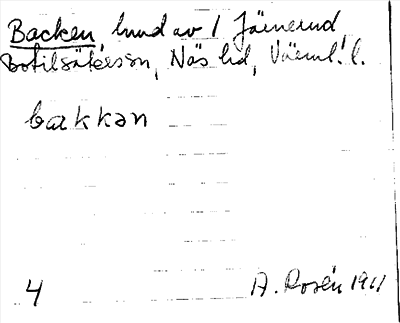 Backen hmd av 1 Järnerud
Botilsäterssn, Näs hd, Värml. l.
bakkan
4 A. Rosén 1911